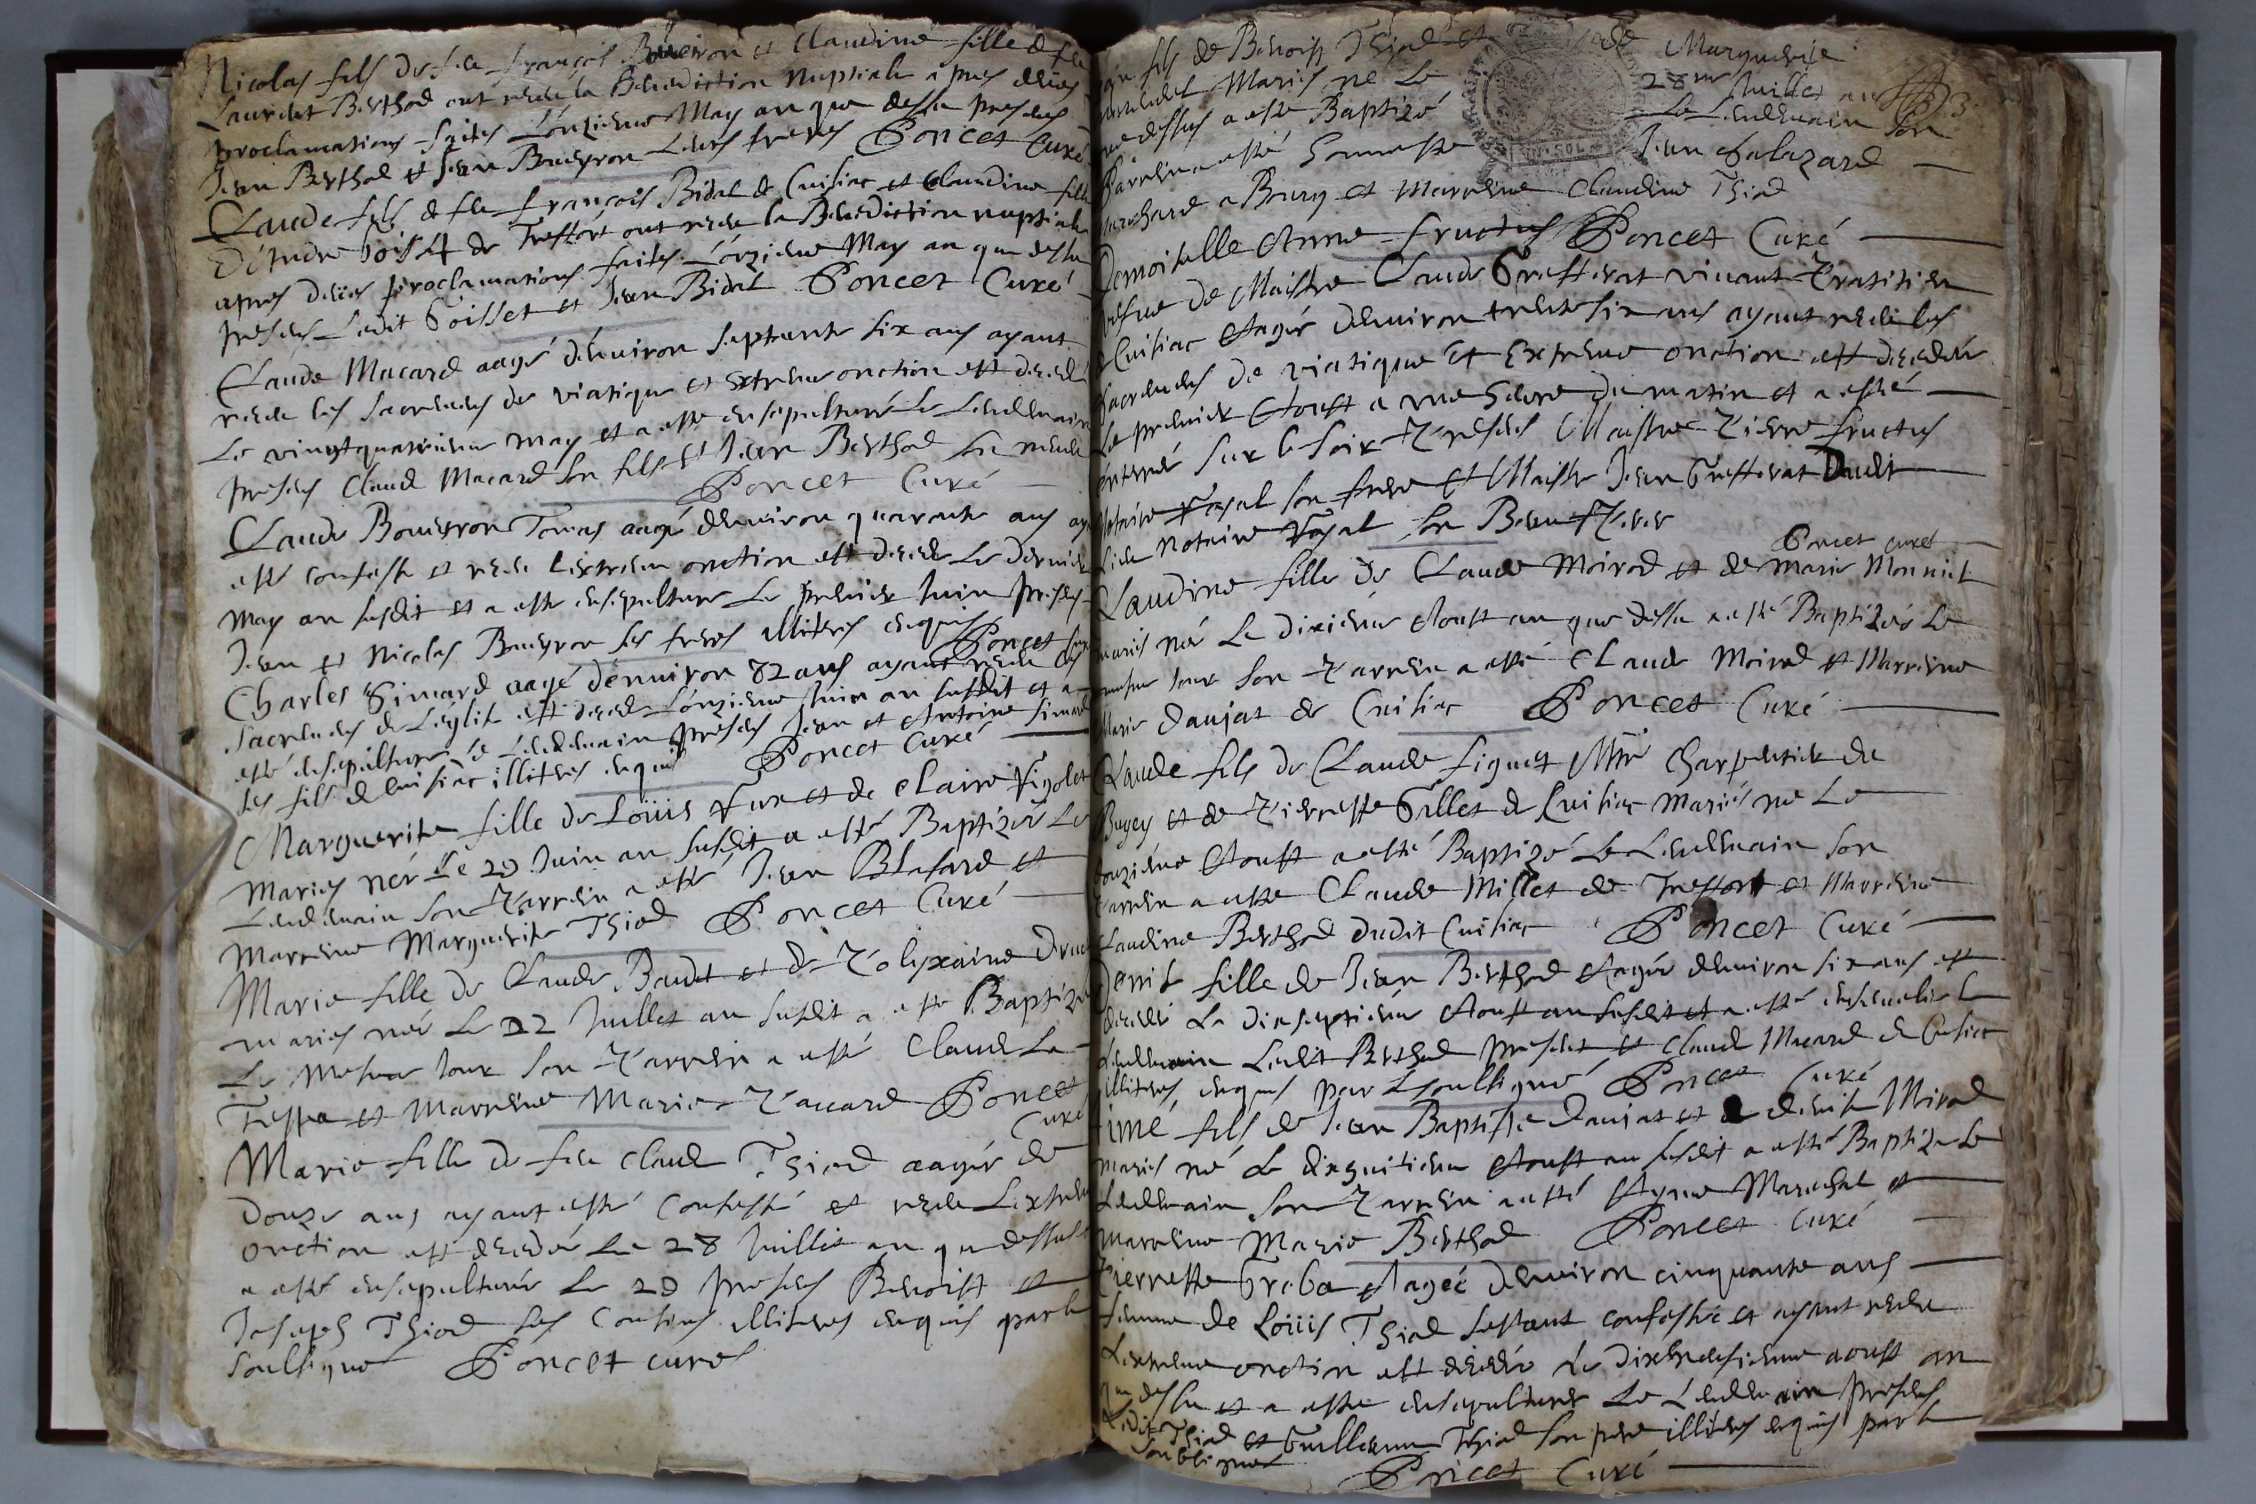 Nicolas fils de feu françois Boueiron et Claudine fille de feu
Laurent Berthod ont receu la Benediction nuptiale apres deües
proclamations faites L'onzieme May an que dessu presens
Jean Berthod et Jean Boueyron Leurs freres Poncet Curé
Claude fils de feu françois Bidal de Cuisiac et Claudine fille
de Treffort ont receu la Benediction nuptiale
apres deües proclamations faites L'onzieme May an que dessu
presens Ledit Goisset et Jean Bidal Poncet Curé
Claude Macard aagé d'enuiron septante six ans ayant
receu les sacremens de viatique et extreme onction est decedé
Le vingtquatrieme may et a esté ensepulturé Le Lendemain
presens Claude Macard son fils et Jean Berthod son neueu
Poncet Curé
Claude Boueyron Tomas aagé d'enuiron quarante ans aya
esté confessé et receu L'extreme onction est decedé Le dernier
May an susdit et a esté ensepulturé Le premier Juin presens
Jean et Nicolas Boueyron ses freres illiteres enquis Poncet Curé
Charles Simard aagé d'enuiron 82 ans ayant receu les
sacremens de L'eglise est decedé L'onzieme Juin an susdit et a
esté ensepulturé Le Lendemain presens Jean et Antoine Simard
ses fils de Cuisiac illiteres enquis Poncet Curé
Marguerite fille de Loüis Furet de Claire Figolet
Mariés née Le 20 Juin an susdit a esté Baptizée Le
Lendemain son Parrein a esté Jean Blafard et
Marreine Marguerite Thiod Poncet Curé
Marie fille de Claude Baudet et de Polixaine Druet
mariés née Le 22 Juillet an susdit a esté Baptizée
Le mesme Jour son Parrein a esté Claude La
Teppe et Marreine Marie Paccard Poncet
Curé
Marie fille de feu Claude Thiod aagée de
Douze ans ayant esté Confessé et receu L'extreme
onction est decedée Le 28 Juillet an que dessus et
a esté ensepulturée Le 29 presens Benoist et
Joseph Thiod ses Cousins illiteres enquis par le
soubsigné Poncet curé
fils de Benoist Thiod et de Marguerite
Mariés né Le 28me Juillet an
que dessus a esté Baptizé Le Lendemain son
Parrein a esté honneste Jean Chalazard
marchand a Bourg et Marreine Claudine Thiod
Demoiselle Anne fructus Poncet Curé
vefue de Maistre Claude Grefferat viuant Pratitien
de Cuisiac Aagée d'enuiron trente six ans ayant receu les
sacremens de viatique Et Extreme onction est decedée
Le premier Aoust a une heure du matin et a esté
enterrée sur le soir Presens Maistre Pierre fructus
Notaire Royal son frere Et Maistre Jean Grefferat Dudit
Lieu Notaire Royal son Beau frere
Poncet curé
Claudine fille de Claude Moirod et de Marie Monniet
mariés née Le dixieme Aoust an que dessu a esté Baptizée Le
mesme Jour son Parrein a esté Claude Moirod et Marreine
Marie Daujat de Cuisiac Poncet Curé
Claude fils de Claude Figuet Mtre Charpentier du
Bugey et de Pierrette Gillet de Cuisiac Mariés né Le
onzieme Aoust a esté Baptizé Le Lendemain son
Parrein a esté Claude Millet de Treffort et Marreine
Claudine Berthod dudit Cuisiac Poncet Curé
Denise fille de Jean Berthod Aagée d'enuiron six ans est
decedée Le dixseptieme Aoust an susdit et a esté enseuelie Le
Lendemain Ledit Berthod present et Claude Macard de Cuisiac
illiteres enquis par Le soubsigné Poncet Curé
Aimé fils de Jean Baptiste Daujat et de denise Mirod
mariés né Le dixhuitieme Aoust an susdit a esté Baptizé Le
Lendemain son Parrein a esté Ayme Marechal et
marreine Marie Berthod Poncet Curé
Pierrette Greba Aagée d'enuiron cinquante ans
femme de Loüis Thiod s'estant confessée et ayant receu
L'extreme onction est decedée Le dixneufieme aoust an
que dessu et a esté ensepulturée Le Lendemain presens
Ledit Thiod et Guillaume Thiod son pere illiteres enquis par le
soubsigné Poncet Curé